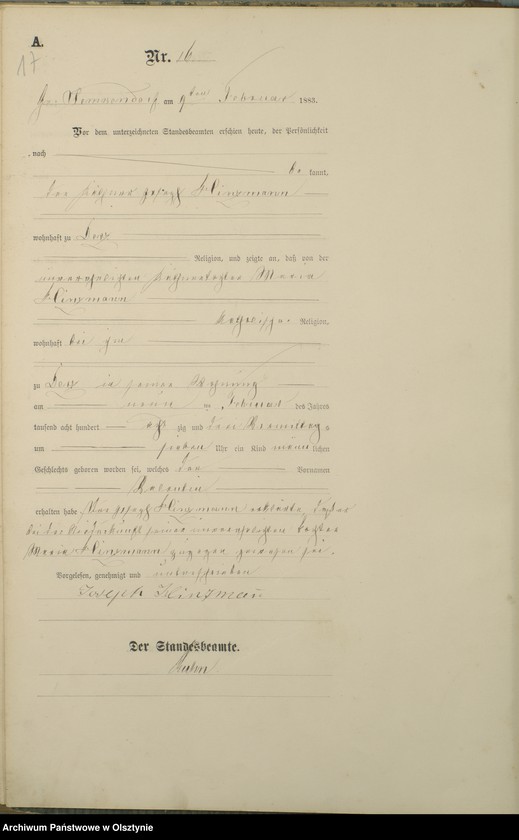 A.
17
Nr. 16
am 9ten Februar 1883.
Vor dem unterzeichneten Standesbeamten erschien heute, der Persönlichkeit
nach
be kannt,
der Joseph Hinzmann
wohnhaft zu
Religion, und zeigte an, daß von der
unverehelichten Maria
Hinzmann
katholischer Religion,
wohnhaft bei ihm
zu in seiner Wohnung
am neun ten Februar des Jahres
tausend acht hundert acht zig und drei Vormittags
um sieben Uhr ein Kind männ lichen
Geschlechts geboren worden sei, welches den Vornamen
Valentin
erhalten habe Joseph Hinzmann erklärte, daß er
bei der Niederkunft seiner unverehelichten Tochter
Maria Hinzmann zugegen gewesen sei.
Vorgelesen, genehmigt und unterschrieben
Joseph Hinzman
Der Standesbeamte.
Archiwum Państwowe w Olsztynie